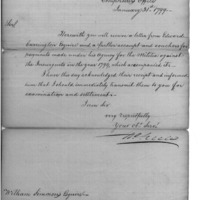 Comptroller's Office
January 31st 1799.
Sir,
Herewith you will receive a letter from Edward
Carrington Esquire and a further receipt and vouchers for
payments made under his Agency for the Militia against
the Insurgents in the year 1794, which accompanies it.
I have this day acknowledged their receipt and informed
him that I should immediately transmit them to you for
examination and settlement.
I am Sir
very respectfully
Your Obt Servt
William Simmons Esquire